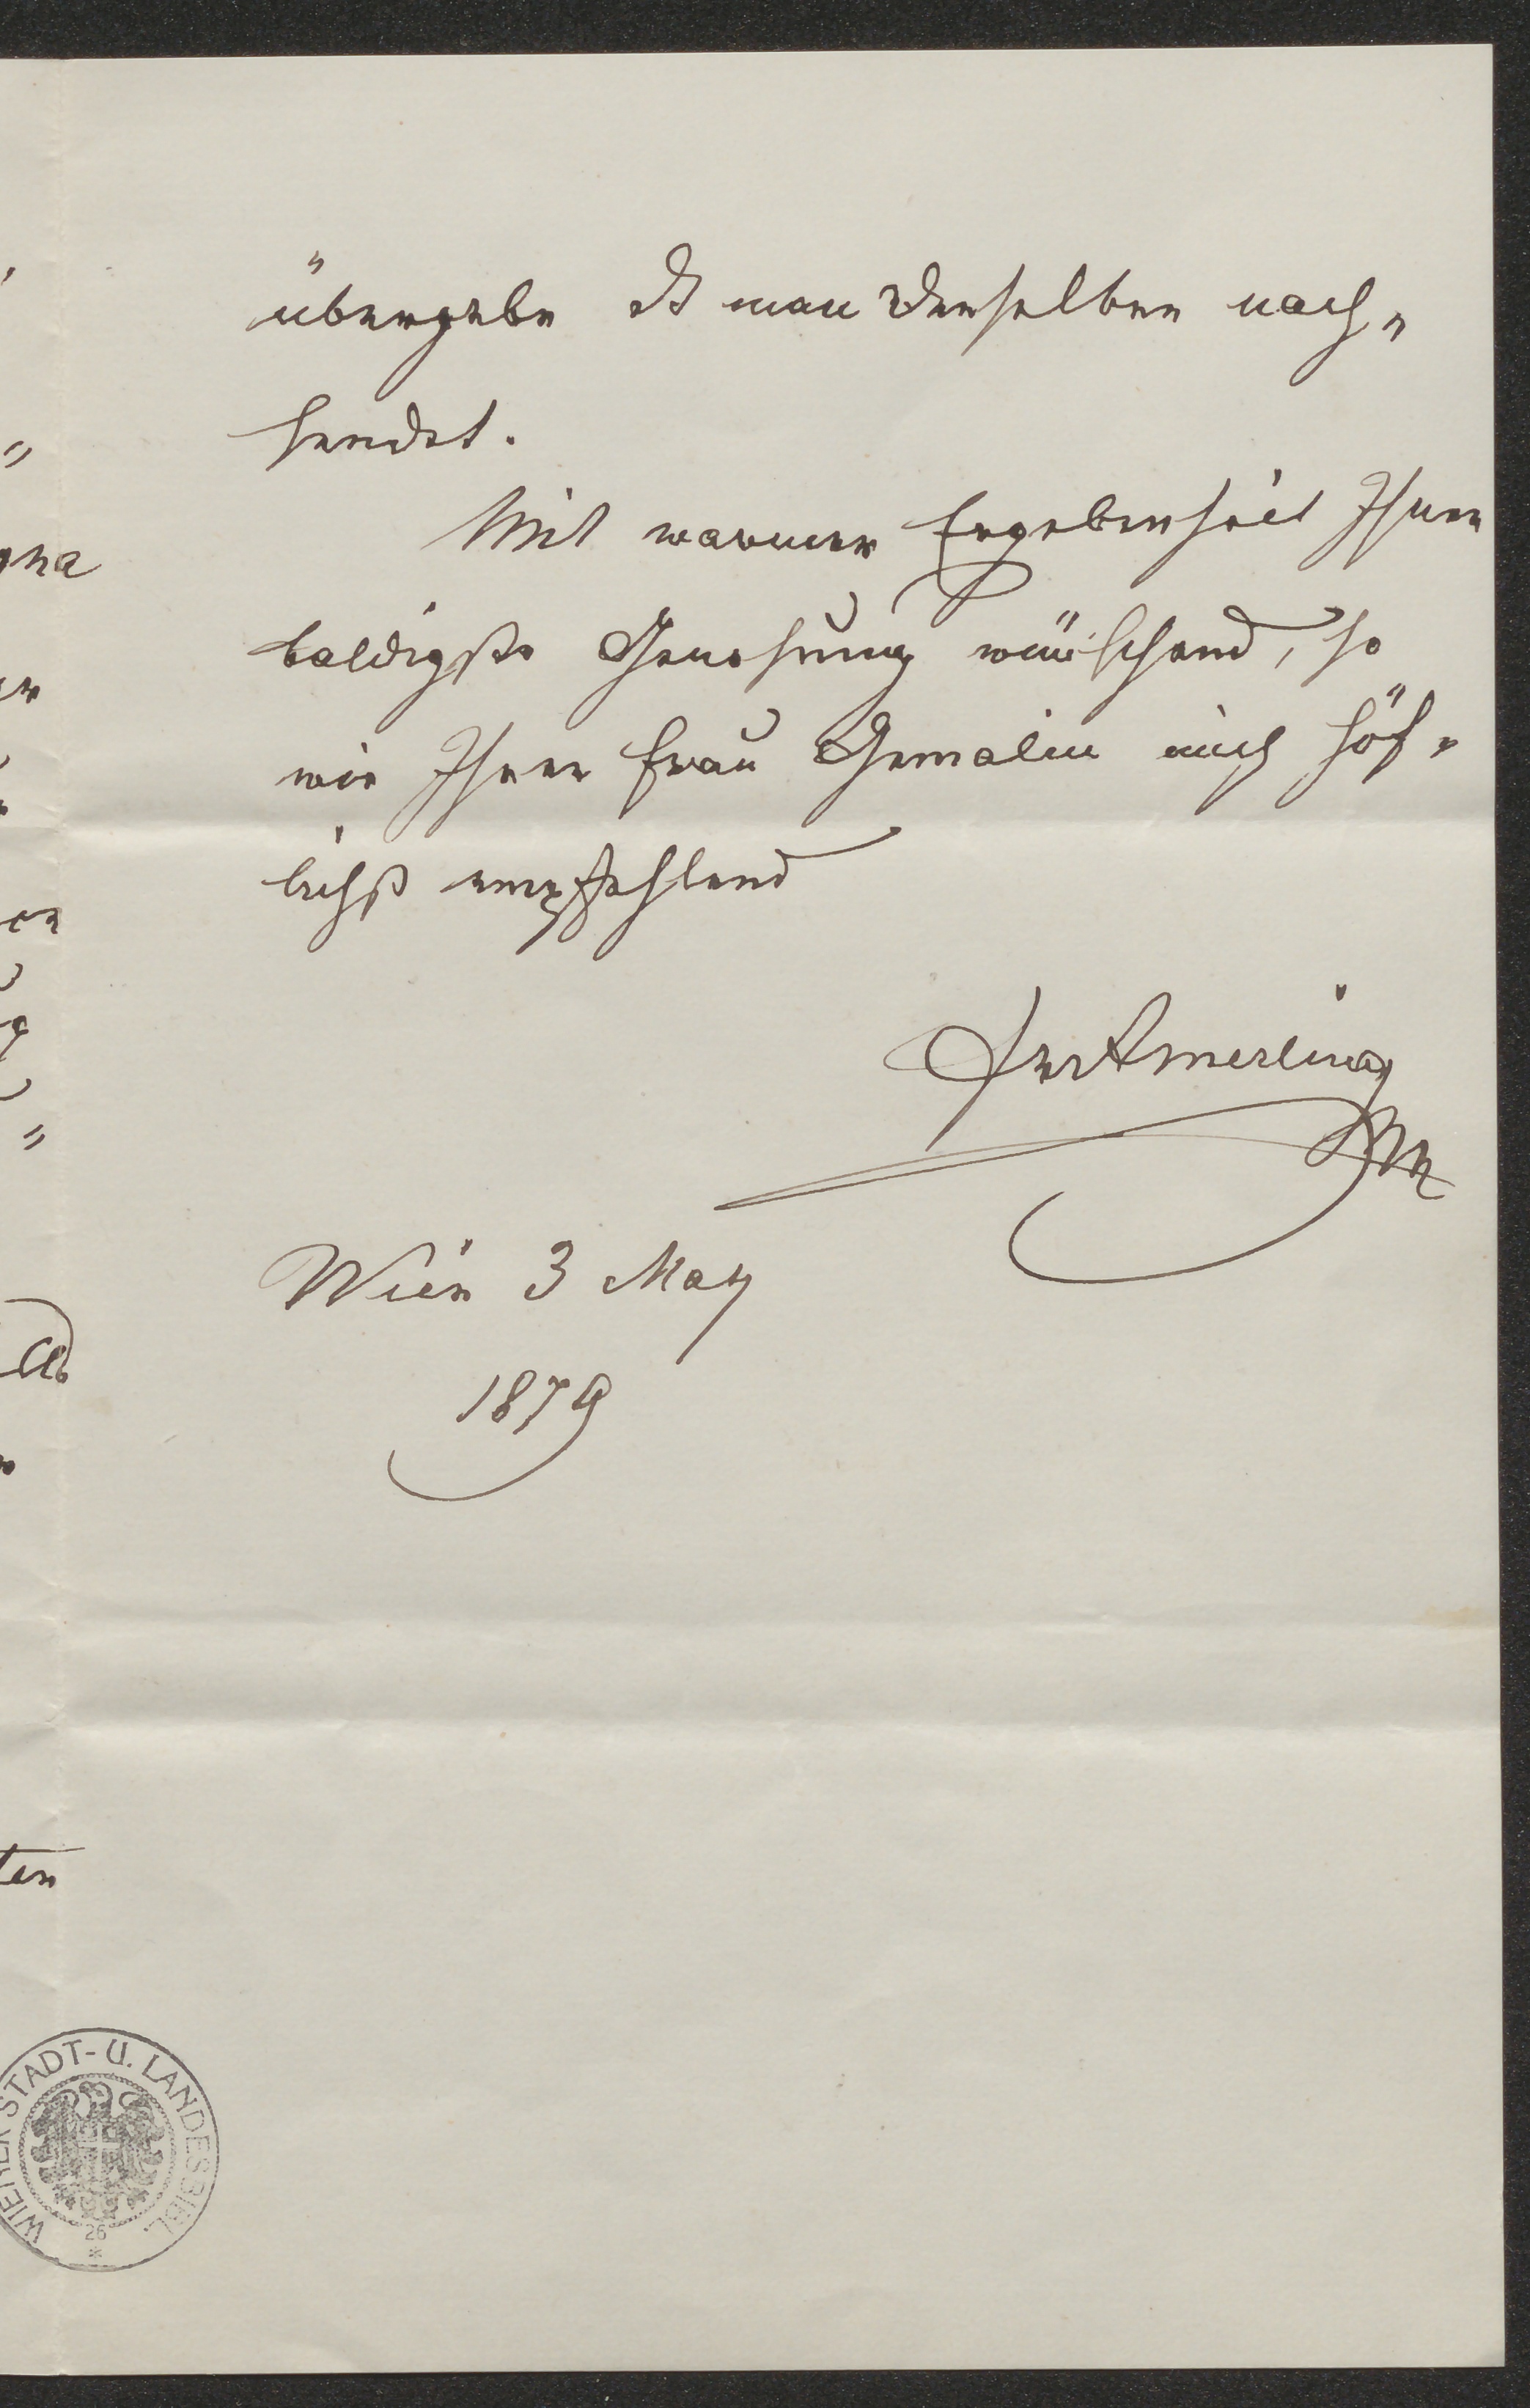 übergebe man denselben nach=
sendet.
Mit warmer Ergebenheit Ihnen
baldigste Genesung wünschend, so
wie Ihrer Frau Gemalin mich höf=
lichst empfehlend
FrvAmerling
Wien 3 May
1879
na
en
ten
WIENER STADT- U. LANDESBIBL.
26